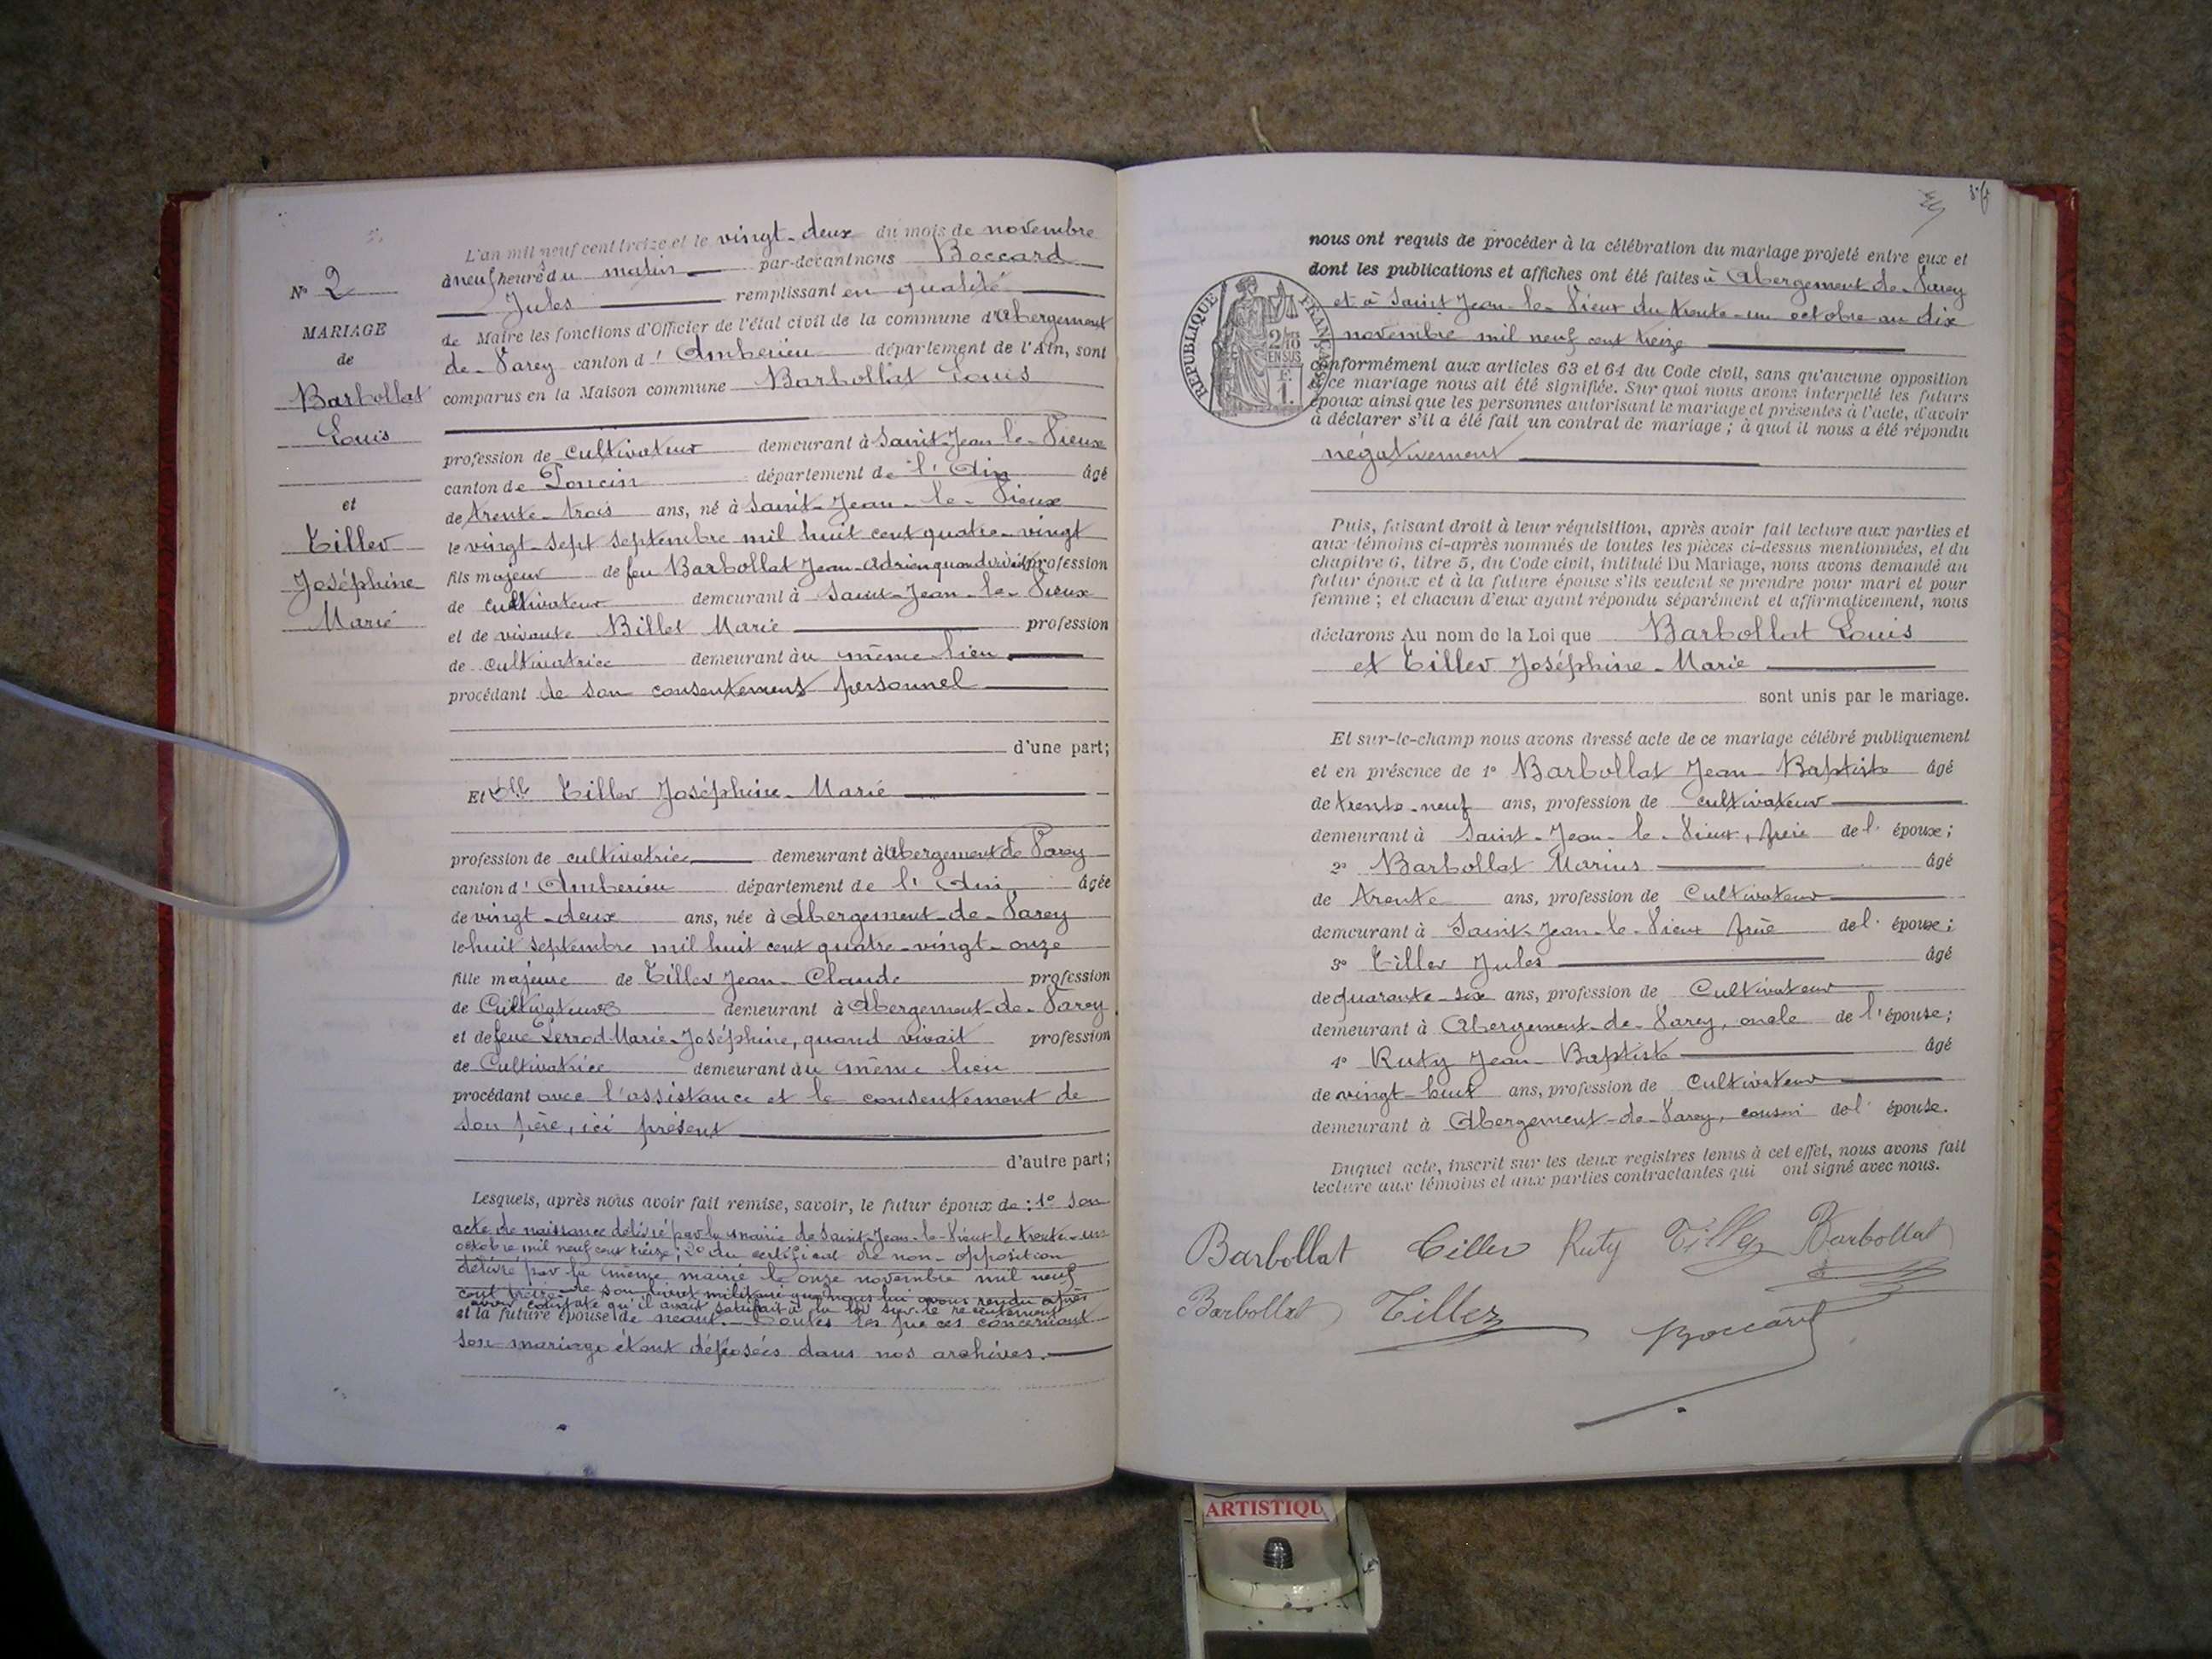 N° 2
MARIAGE
de
Barbollat
Louis
et
Tiller
Joséphine
Marie
L'an mil neuf cent treize et le vingt-deux du mois de novembre
à neuf heures du matin par-devant nous Boccard
Jules remplissant en qualité
de Maire les fonctions d'Officier de l'état civil de la commune d'Abergement
de-Varey canton d'Ambérieu département de l'Ain, sont
comparus en la Maison commune Barbollat Louis
profession de cultivateur demeurant à Saint-Jean-le-Vieux
canton de Poncin département de l'Ain âgé
de trente-trois ans, né à Saint-Jean-le-Vieux
le vingt-sept septembre mil huit cent quatre-vingt
fils majeur de feu Barbollat Jean-Adrien quand vivait profession
de cultivateur demeurant à Saint-Jean-le-Vieux
et de vivante Billet Marie profession
de cultivatrice demeurant au même lieu
procédant de son consentement personnel
d'une part;
Et Dlle Tiller Joséphine-Marie
profession de cultivatrice demeurant à Abergement de Varey
canton d'Ambérieu département de l'Ain, âgée
de vingt-deux ans, née à Abergement-de-Varey
le huit septembre mil huit cent quatre-vingt-onze
fille majeure de Tiller Jean-Claude profession
de Cultivateur demeurant à Abergement-de-Varey
et de feue Perrod Marie-Joséphine, quand vivait profession
de Cultivatrice demeurant au même lieu
procédant avec l'assistance et le consentement de
son père, ici présent
d'autre part;
Lesquels, après nous avoir fait remise, savoir, le futur époux de : 1° son
acte de naissance délivré par la mairie de Saint-Jean-le-Vieux le trente-un
octobre mil neuf cent treize; 2° du certificat de non-opposition
délivré par la même mairie le onze novembre mil neuf
cent treize de son livret militaire que nous lui avons rendu après
avoir constaté qu'il avait satisfait à la loi sur le recrutement
et la future épouse de néant. Toutes les pièces concernant
son mariage étant déposées dans nos archives.
nous ont requis de procéder à la célébration du mariage projeté entre eux et
dont les publications et affiches ont été faites à Abergement-de-Varey
et à Saint-Jean-le-Vieux du trente-un octobre au dix
novembre mil neuf cent treize
conformément aux articles 63 et 64 du Code civil, sans qu'aucune opposition
à ce mariage nous ait été signifiée. Sur quoi nous avons interpellé les futurs
époux ainsi que les personnes autorisant le mariage et présentes à l'acte, d'avoir
à déclarer s'il a été fait un contrat de mariage; à quoi il nous a été répondu
négativement
RÉPUBLIQUE FRANÇAISE
2/10
EN SUS
F.
1.
Puis, faisant droit à leur réquisition, après avoir fait lecture aux parties et
aux témoins ci-après nommés de toutes les pièces ci-dessus mentionnées, et du
chapitre 6, titre 5, du Code civil, intitulé Du Mariage, nous avons demandé au
futur époux et à la future épouse s'ils veulent se prendre pour mari et pour
femme; et chacun d'eux ayant répondu séparément et affirmativement, nous
déclarons Au nom de la Loi que Barbollat Louis
et Tiller Joséphine-Marie
sont unis par le mariage.
Et sur-le-champ nous avons dressé acte de ce mariage célébré publiquement
et en présence de 1° Barbollat Jean-Baptiste âgé
de trente-neuf ans, profession de cultivateur
demeurant à Saint-Jean-le-Vieux, frère de l'époux;
2° Barbollat Marius âgé
de trente ans, profession de Cultivateur
demeurant à Saint-Jean-le-Vieux frère de l'époux;
3° Tiller Jules âgé
de quarante-six ans, profession de Cultivateur
demeurant à Abergement-de-Varey, oncle de l'épouse;
4° Ruty Jean-Baptiste âgé
de vingt-huit ans, profession de Cultivateur
demeurant à Abergement-de-Varey, cousin de l'épouse.
Duquel acte, inscrit sur les deux registres tenus à cet effet, nous avons fait
lecture aux témoins et aux parties contractantes qui ont signé avec nous.
Barbollat Tiller Ruty Tiller Barbollat
Barbollat Tiller Boccard
ARTISTIQU